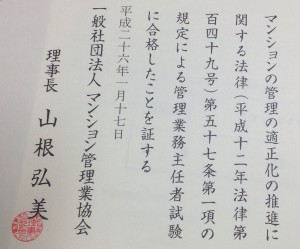 マンションの管理の適正化の推進に
関する法律(平成十二年法律第
百四十九号)第五十七条第一項の
規定による管理業務主任者試験
に合格したことを証する
平成二十六年一月十七日
一般社団法人マンション管理業協会
理事長 山根弘美